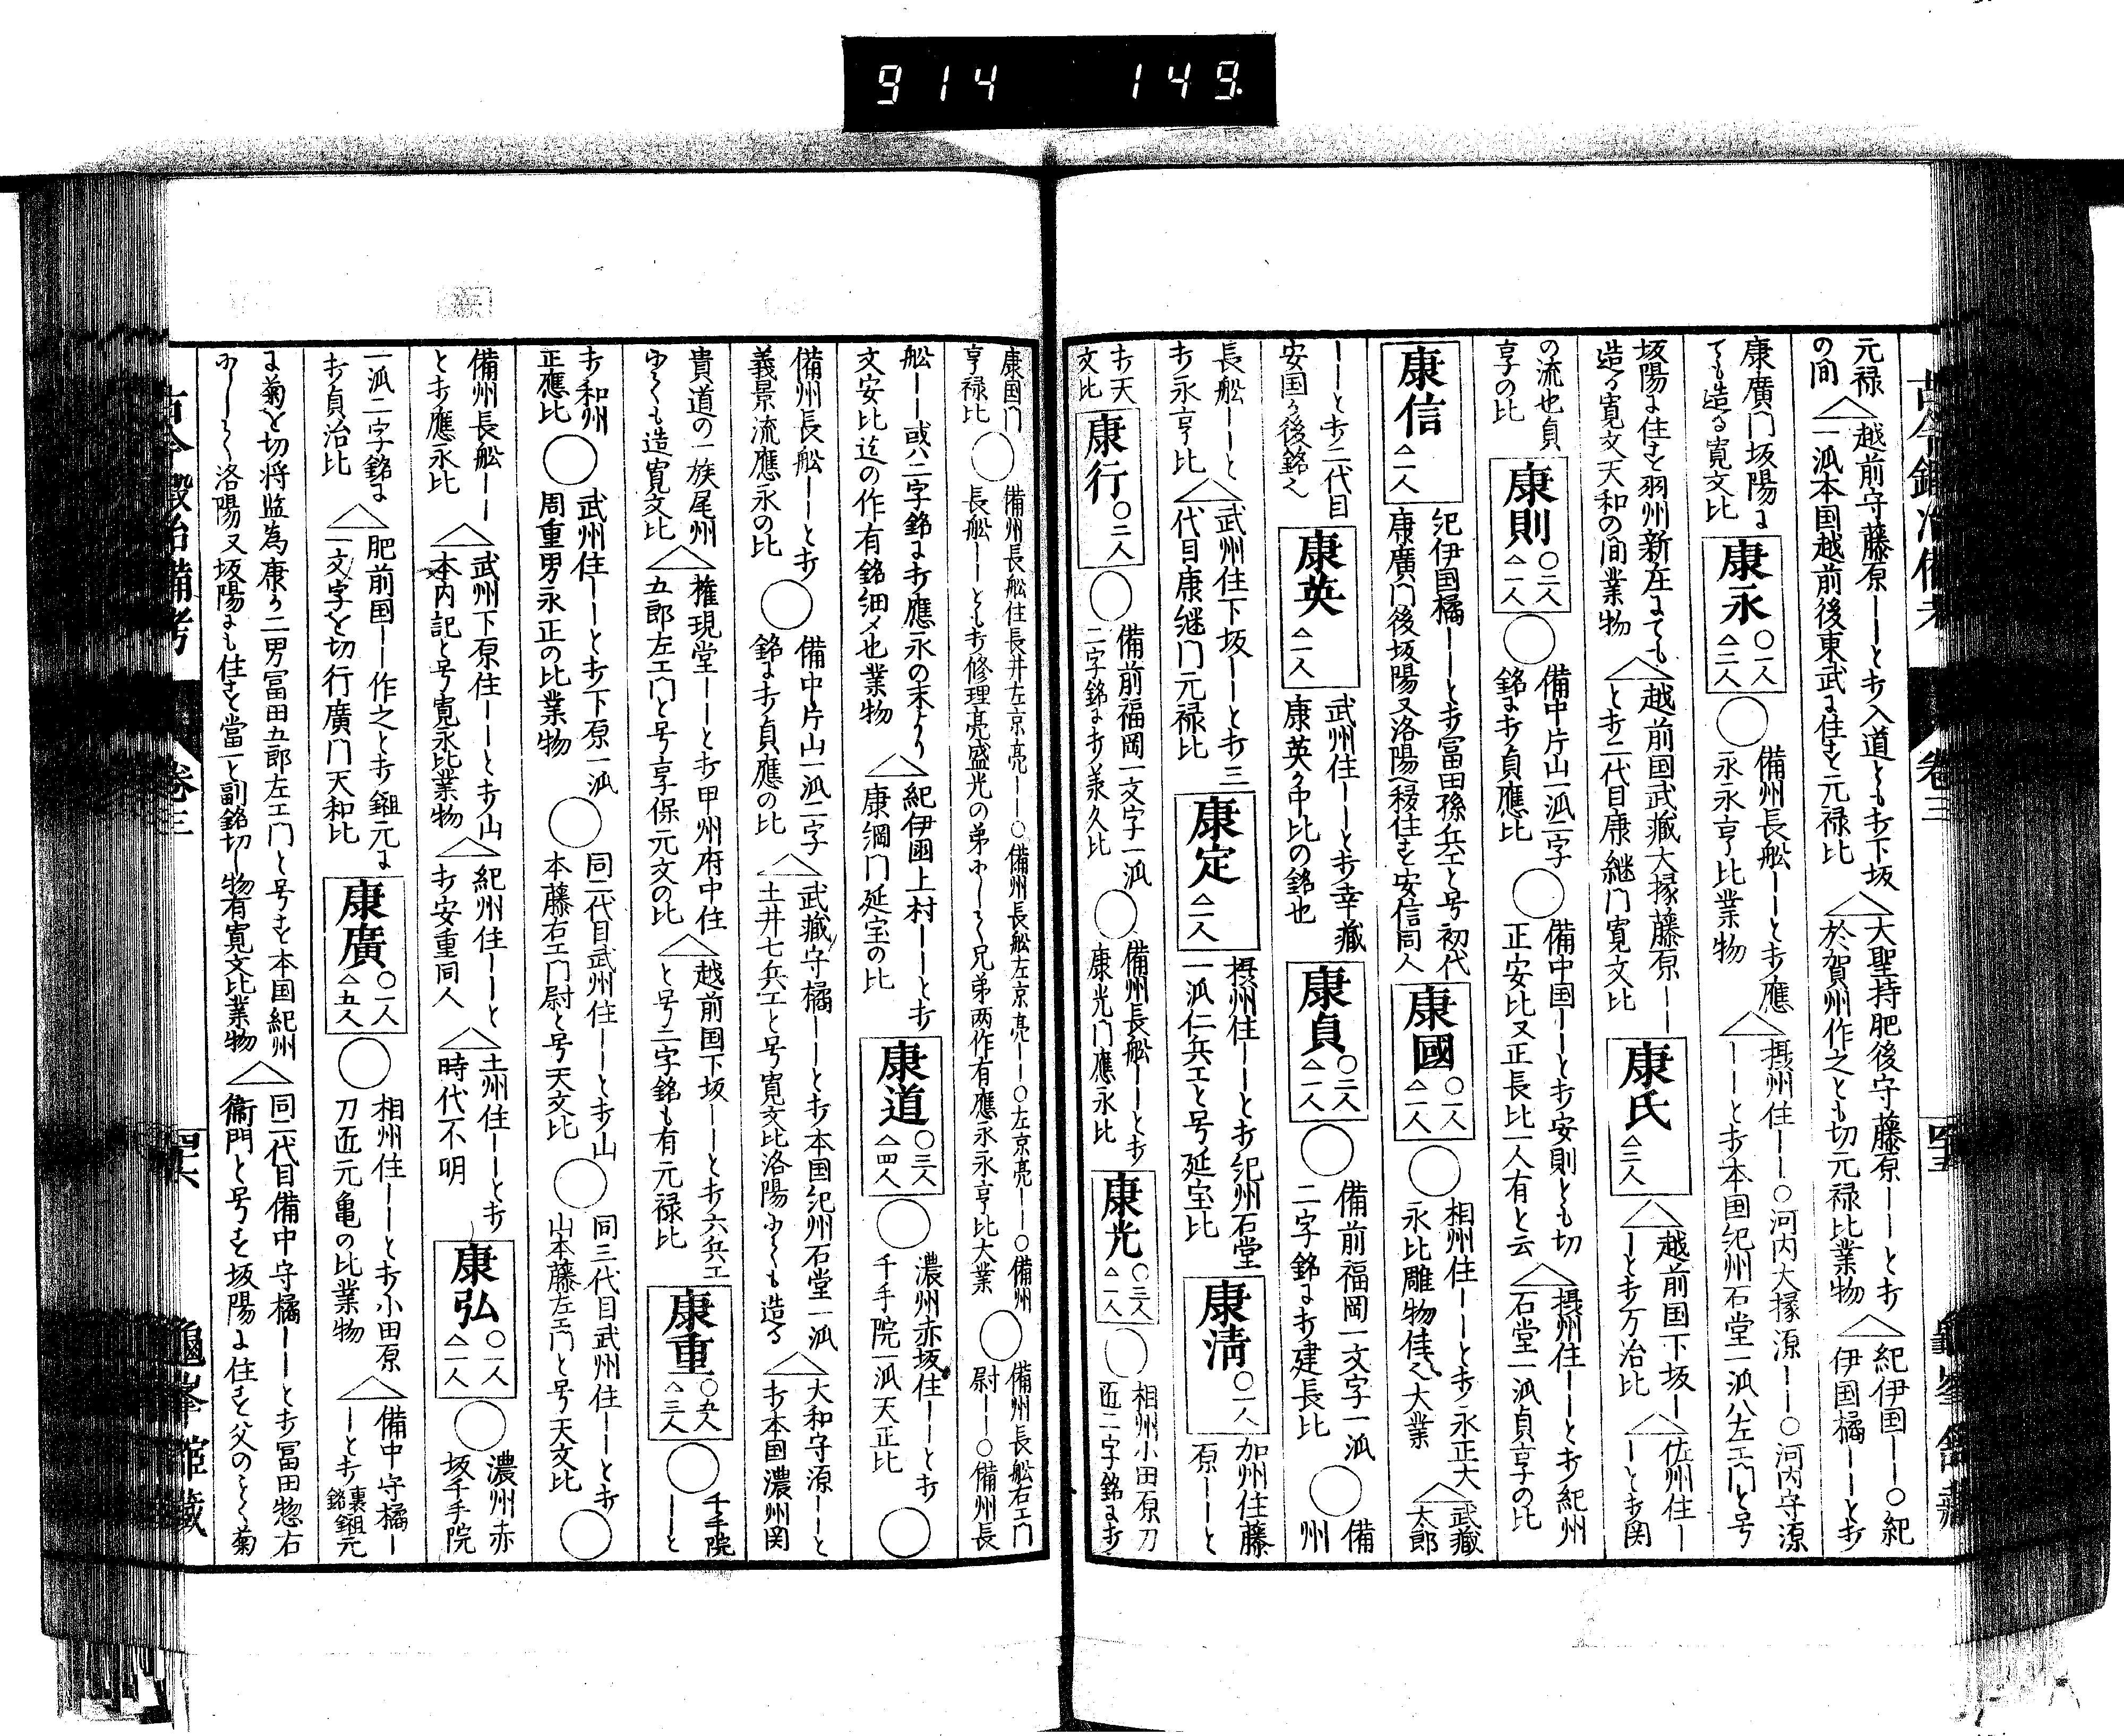 914 149.
古今鍛冶備考 巻三 四十五 龜峯館蔵
元禄の間△越前守藤原｜｜と打入道とも打下坂一派本国越前後東武に住す元禄比△大聖持肥後守藤原｜｜と打於賀州作之とも切元禄比業物△紀伊国｜｜○紀伊国橘｜｜と打
康廣門坂陽にても造る寛文比 康永 ○一人 △三人 ○備州長船｜｜と打應永永享比業物△摂州住｜｜○河内大掾源｜｜○河内守源｜｜と打本国紀州石堂一派八左エ門と号
坂陽に住す羽州新庄にても造る寛文天和の間業物△越前国武藏大掾藤原｜｜と打二代目康継門寛文比 康氏 △三人 △越前国下坂｜｜と打万治比△佐州住｜｜と打関
の流也貞享の比 康則 ○二人 △一人 ○備中片山一派二字銘に打貞應比○備中国｜｜と打安則とも切正安比又正長比一人有と云△摂州住｜｜と打紀州石堂一派貞享の比
康信 △一人 紀伊国橘｜｜と打冨田孫兵エと号初代康廣門後坂陽又洛陽移住す安信同人 康國 ○一人 △一人 ○相州住｜｜と打永正大永比雕物佳く大業△武藏太郎
｜｜と打二代目安国か後銘也 康英 △一人 武州住｜｜と打幸藏康英か中比の銘也 康貞 ○二人 △一人 ○備前福岡一文字一派二字銘に打建長比○備州
長船｜｜と打永亨比△武州住下坂｜｜と打三代目康継門元禄比 康定 △一人 摂州住｜｜と打紀州石堂一派仁兵エと号延宝比 康淸 ○一人 加州住藤原｜｜と
打天文比 康行 ○二人 ○備前福岡一文字一派二字銘に打承久比○備州長船｜｜と打康光門應永比 康光 ○三人 △一人 ○相州小田原刀匠二字銘に打
康国門亨禄比○備州長船住長井左京亮｜｜○備州長船左京亮｜｜○左京亮｜｜○備州長船｜｜とも打修理亮盛光の弟にして兄弟両作有應永永亨比大業○備州長船右エ門尉｜｜○備州長
船｜｜或ハ二字銘に打應永の末より文安比迄の作有銘細〆也業物△紀伊國上村｜｜と打康綱門延宝の比 康道 ○三人 △四人 ○濃州赤坂住｜｜と打千手院一派天正比○
備州長船｜｜と打義景流應永の比○備中片山一派二字銘に打貞應の比△武藏守橘｜｜と打本国紀州石堂一派土井七兵エと号寛文比洛陽にても造る△大和守源｜｜と打本国濃州関
貴道の一族尾州にても造寛文比△権現堂｜｜と打甲州府中住五郎左エ門と号享保元文の比△越前国下坂｜｜と打六兵エと号二字銘も有元禄比 康重 ○五人 △三人 ○千手院｜｜と
打和州正應比○武州住｜｜と打下原一派周重男永正の比業物○同二代目武州住｜｜と打山本藤右エ門尉と号天文比○同三代目武州住｜｜と打山本藤左エ門と号天文比○
備州長船｜｜と打應永比△武州下原住｜｜と打山本内記と号寛永比業物△紀州住｜｜と打安重同人△土州住｜｜と打時代不明 康弘 ○一人 △一人 ○濃州赤坂千手院
一派二字銘に打貞治比△肥前国｜｜作之と打鎺元に一文字を切行廣門天和比 康廣 ○一人 △五人 ○相州住｜｜と打小田原刀匠元亀の比業物△備中守橘｜｜と打裏鎺元銘
に菊を切将監為康か二男冨田五郎左エ門と号す本国紀州にして洛陽又坂陽にも住す當一と副銘切し物有寛文比業物△同二代目備中守橘｜｜と打冨田惣右衞門と号す坂陽に住す父のことく菊
古今鍛冶備考 巻三 四十六 龜峯館蔵